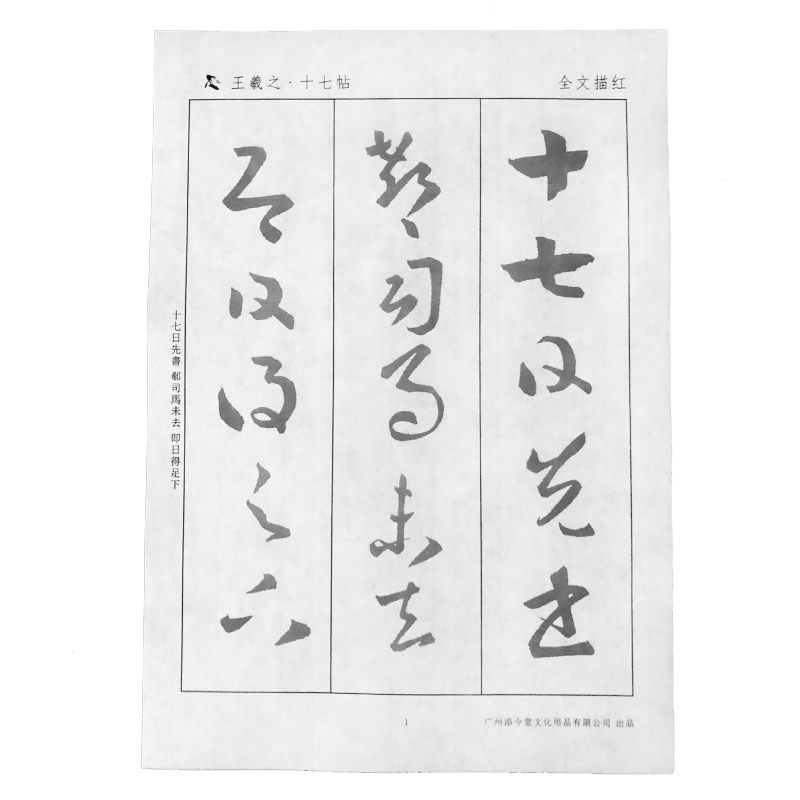 王羲之·十七帖
全文描红
十七日先書
郗司馬未去
即日得足下
十七日先書 郗司馬未去 即日得足下
1
广州添今堂文化用品有限公司 出品